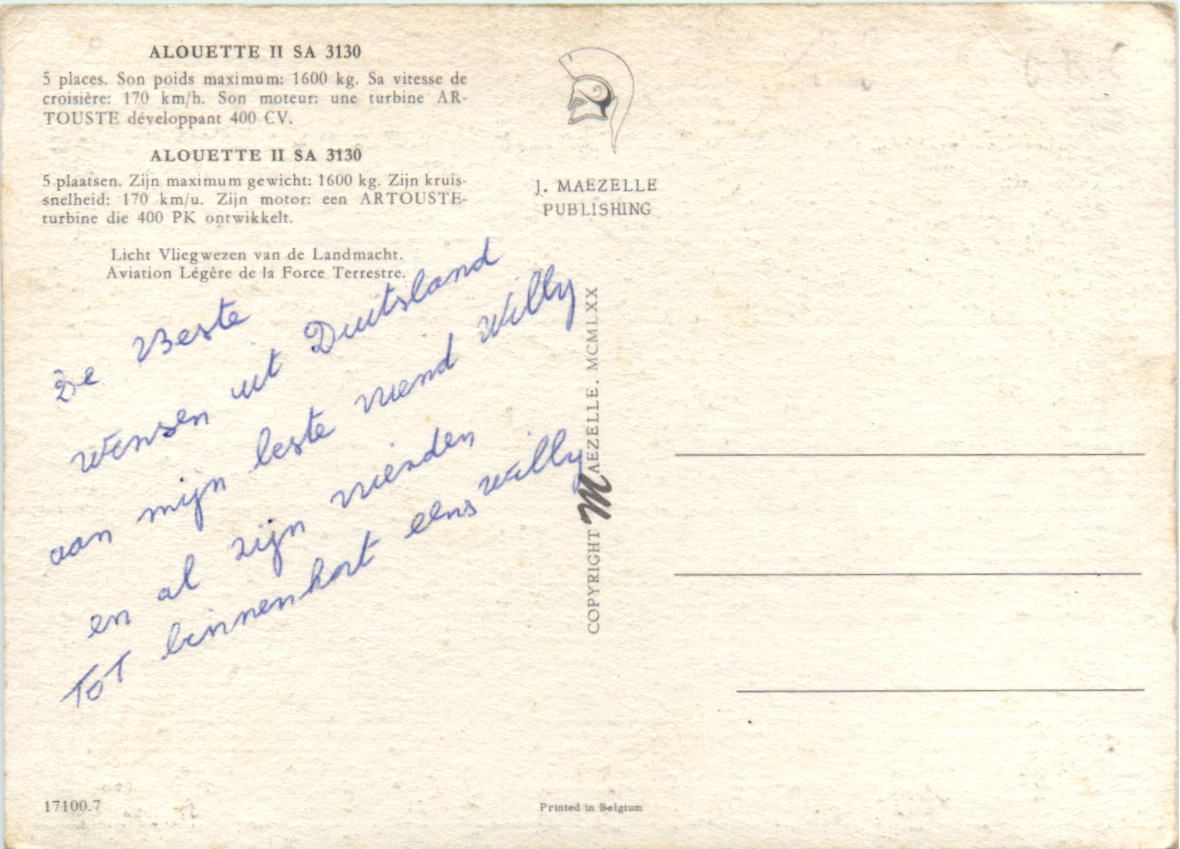 ALOUETTE II SA 3130
5 places. Son poids maximum: 1600 kg. Sa vitesse de
croisière: 170 km/h. Son moteur: une turbine AR-
TOUSTE développant 400 CV.
ALOUETTE II SA 3130
5 plaatsen. Zijn maximum gewicht: 1600 kg. Zijn kruis-
snelheid: 170 km/u. Zijn motor: een ARTOUSTE-
turbine die 400 PK ontwikkelt.
Licht Vliegwezen van de Landmacht.
Aviation Légère de la Force Terrestre.
De Beste
wensen uit Duitsland
aan mijn beste vriend Willy
en al zijn vrienden
Tot binnenkort eens willy
17100.7
J. MAEZELLE
PUBLISHING
COPYRIGHT MAEZELLE, MCMLXX
Printed in Belgium